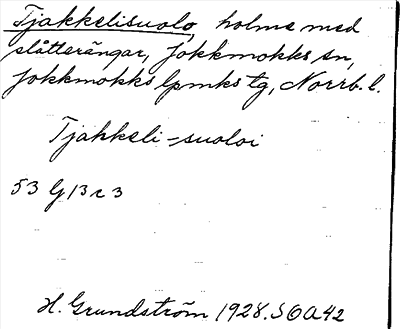 Tjakkelisuolo, holme med
slåtterängar, Jokkmokks sn,
Jokkmokks lpmks tg, Norrb. l.
Tjahkeli-suoloi
53 G 13 c 3
H. Grundström 1928. S 6 A 42